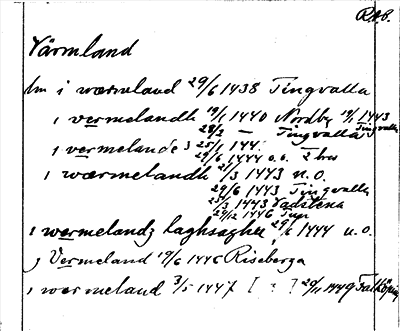 RAP.
Värmland
lm i wærmeland 29/6 1438 Tingvalla
i vermelandh 19/1 1440 Nordby 19/1 1443 Tingvalla
28/2 — Tingvalla
i vermelande 25/1 144
29/6 1444 o.o. 2 brev
i wærmelandh 21/3 1443 n.o.
29/6 1443 Tingvalla
25/3 1443 Vadstena
29/12 1446
i wermelandz laghsaghu 29/6 1444 u.o.
j Vermeland 19/6 1446 Riseberga
i wermeland 3/5 1447 [ : ] 20/11 1449 Falköping